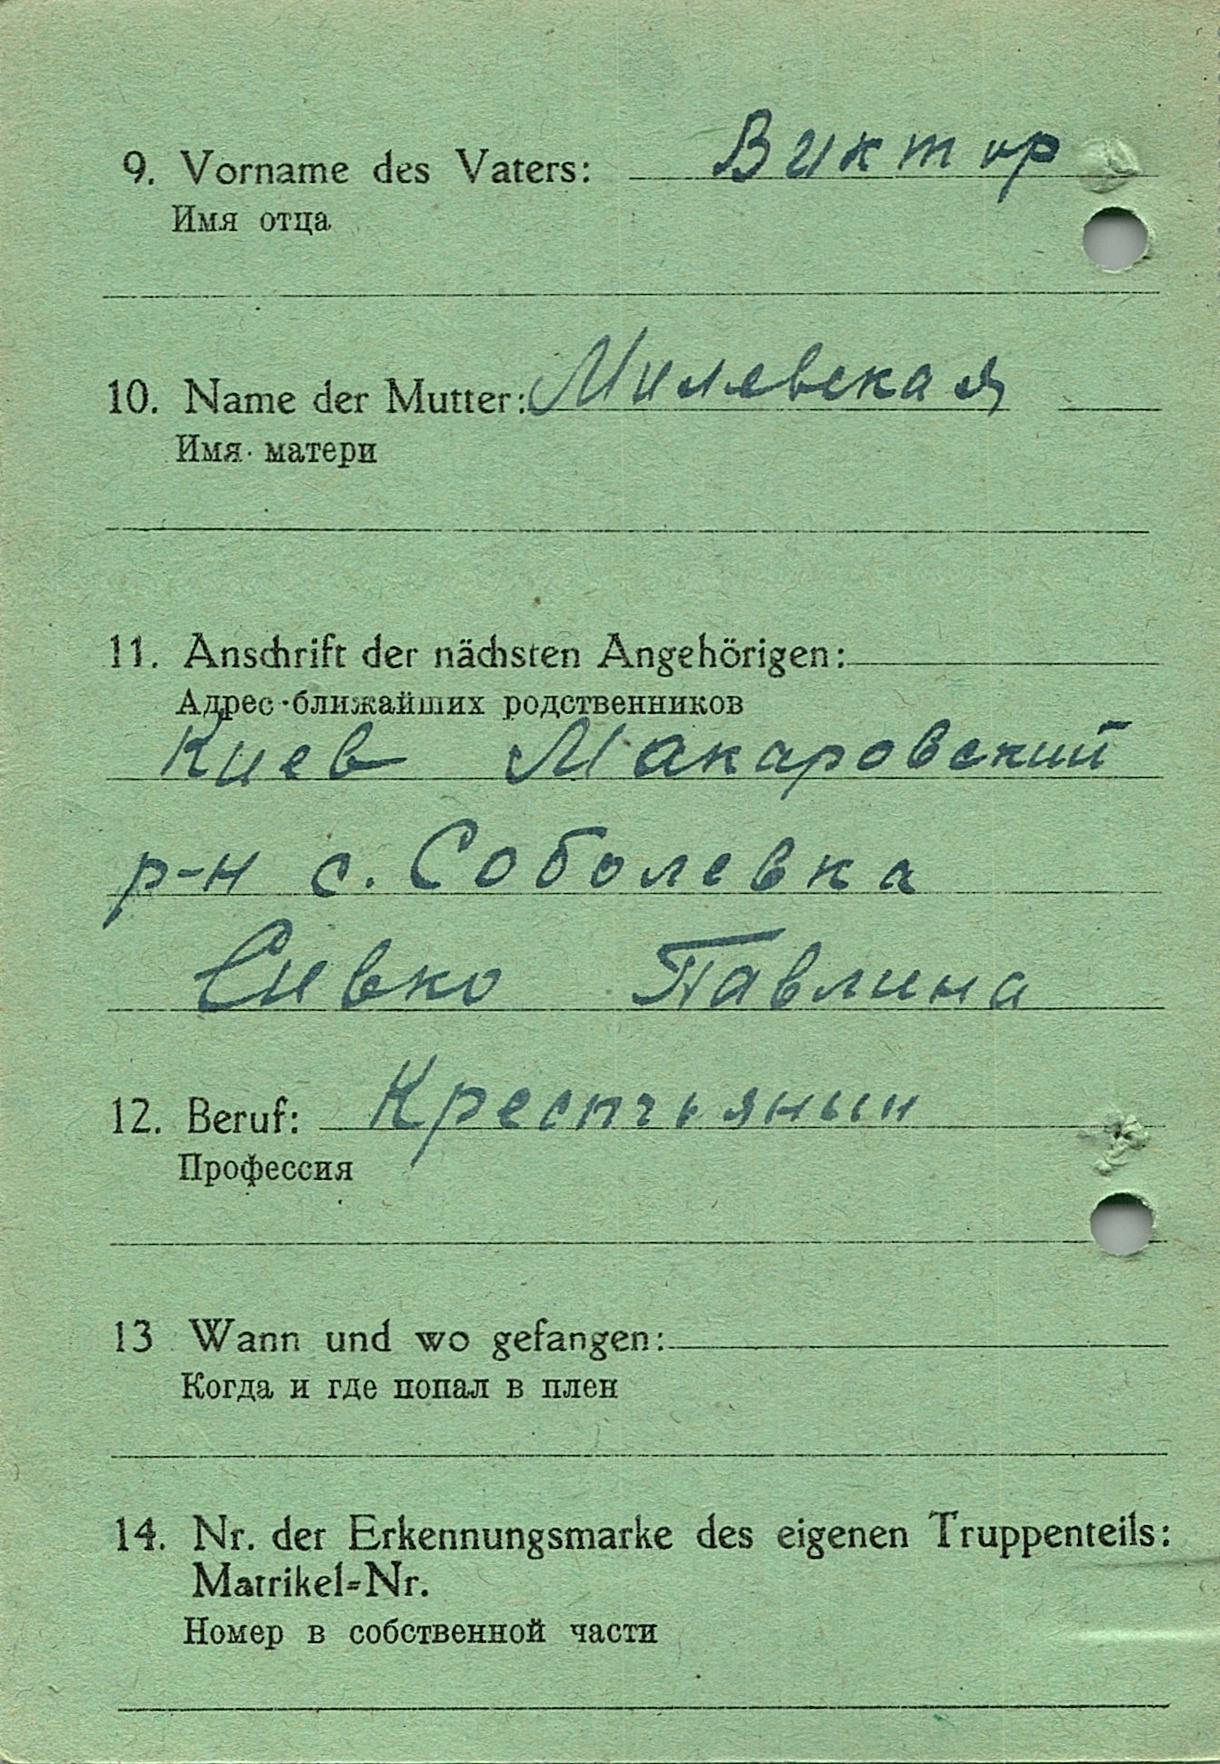 9. Vorname des Vaters: Виктор
Имя отца
10. Name der Mutter: Милевская
Имя матери
11. Anschrift der nächsten Angehörigen:
Адрес ближайших родственников
Киев Макаровский
р-н с. Соболевка
Сивко Павлина
12. Beruf: Крестьянын
Профессия
13 Wann und wo gefangen:
Когда и где попал в плен
14. Nr. der Erkennungsmarke des eigenen Truppenteils:
Matrikel-Nr.
Номер в собственной части